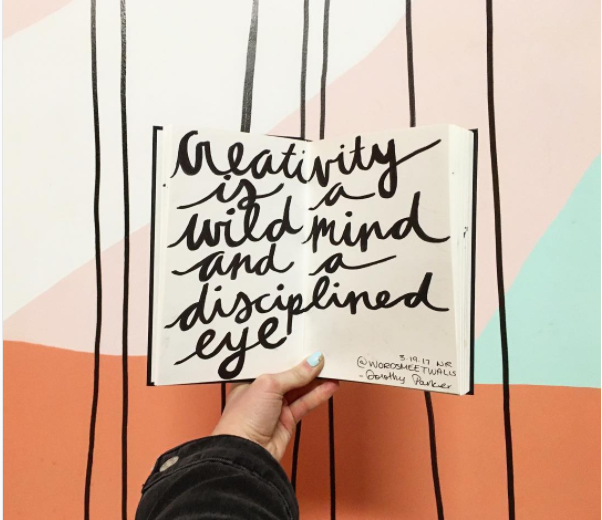 Creativity
is a
wild mind
and a
disciplined
eye
3.19.17 NR
@WORDSMEETWALLS
- Dorothy Parker